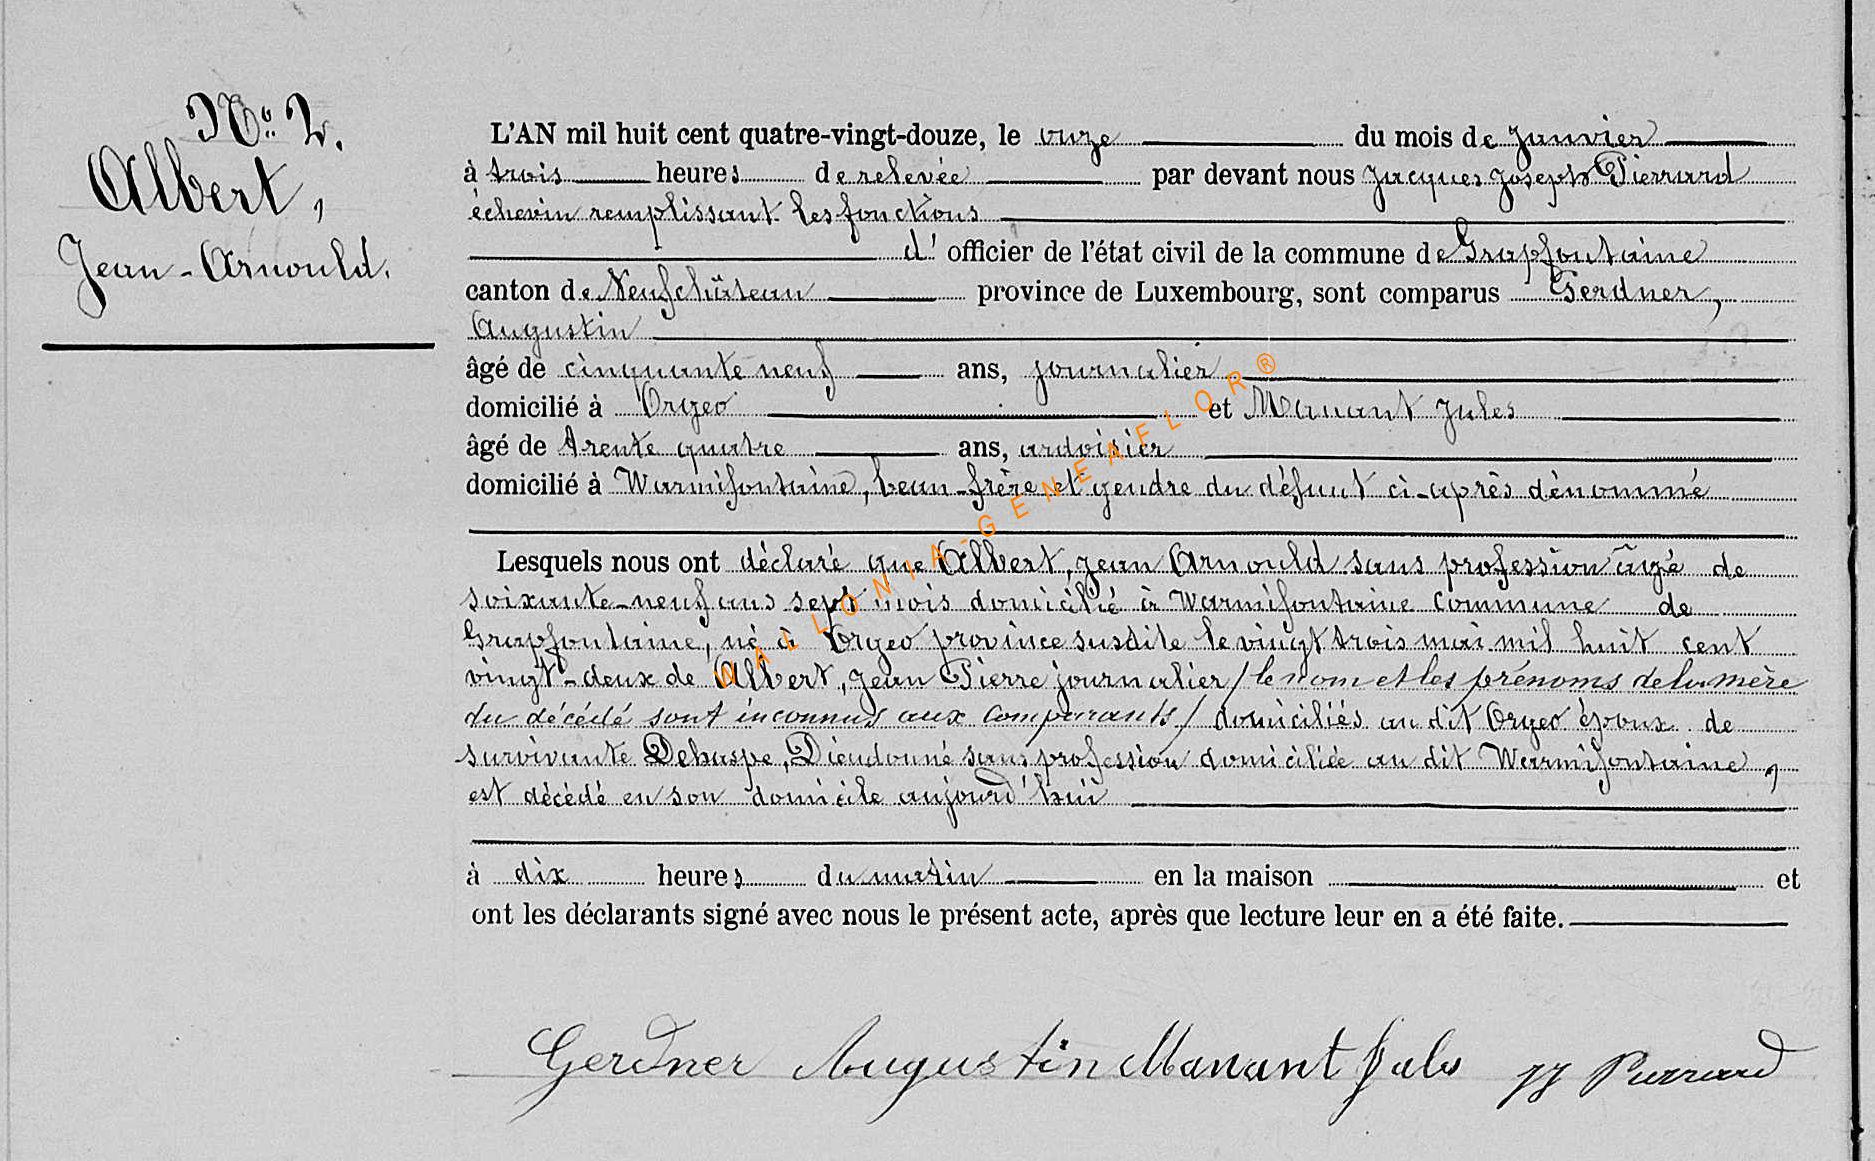 No. 2.
Albert,
Jean-Arnould.
L'AN mil huit cent quatre-vingt-douze, le onze du mois de Janvier
à trois heures de relevée par devant nous Jacques Joseph Pierrard
échevin remplissant les fonctions
d' officier de l'état civil de la commune de Grapfontaine
canton de Neufchâteau province de Luxembourg, sont comparus Gerdner,
Augustin
âgé de cinquante neuf ans, journalier
domicilié à Orgeo et Manant Jules
âgé de trente quatre ans, ardoisier
domicilié à Warmifontaine, beau-frère et gendre du défunt ci-après dénommé
Lesquels nous ont déclaré que Albert, Jean Arnould sans profession âgé de
soixante-neuf ans sept mois domicilié à Warmifontaine commune de
Grapfontaine, né à Orgeo province susdite le vingt trois mai mil huit cent
vingt-deux de Albert, Jean Pierre journalier / le nom et les prénoms de la mère
du décédé sont inconnus aux comparants / domiciliés au dit Orgeo époux de
survivante Dehaspe, Dieudonné sans profession domiciliée au dit Warmifontaine,
est décédé en son domicile aujourd'hui
à dix heures du matin en la maison et
ont les déclarants signé avec nous le présent acte, après que lecture leur en a été faite.
Gerdner Augustin Manant Jules JJ Pierrard
WALLONIA-GENEAFLOR®